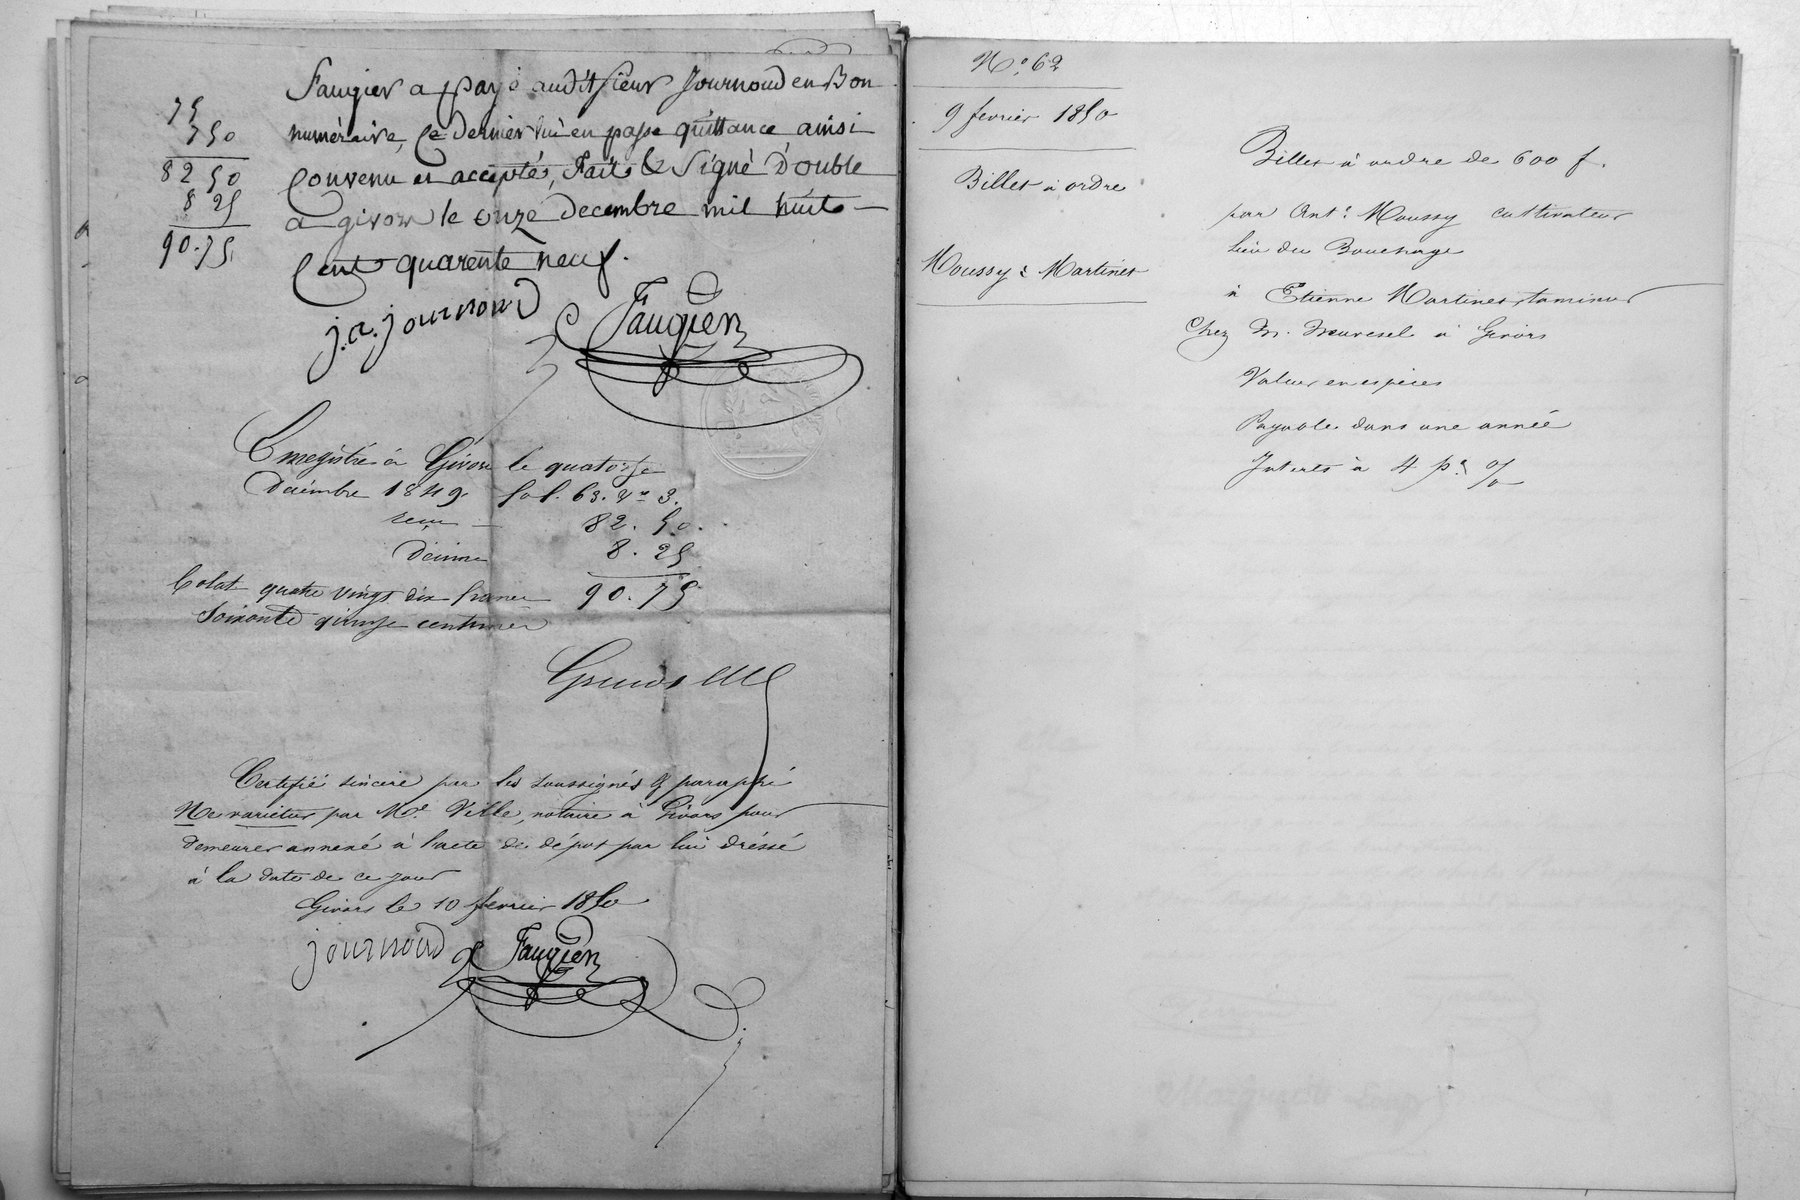 Faugier a payé audit sieur Journoud en Bon
numéraire, Ce dernier lui en passe quittance ainsi
Convenu et accepté, Fait & Signé Double
a givors le onze decembre mil huit
Cent quarente neuf.
75
7 50
82 50
8 25
90.75
j.a. journoud Faugier
Enregistré à Givors le quatorze
Décembre 1849. fol. 63. 3.
reçu 82. 50.
Décime 8. 25
Total quatre vingt dix francs 90. 75
Soixante quinze centimes
Certifié sincere par les soussignés & paraphé
Ne varietur par Me. Ville, notaire à Givors pour
demeurer annexé à l'acte de dépot par lui dréssé
à la date de ce jour
Givors le 10 fevrier 1850
journoud Faugier
No. 62
9 fevrier 1850
Billet à ordre
Moussy à Martinet
Billet à ordre de 600 f.
par Ant. Moussy cultivateur
lieu du Bouchage
à Etienne Martinet
Chez M. à Givors
Valeur en espèces
Payable dans une année
Interets à 4 pr %